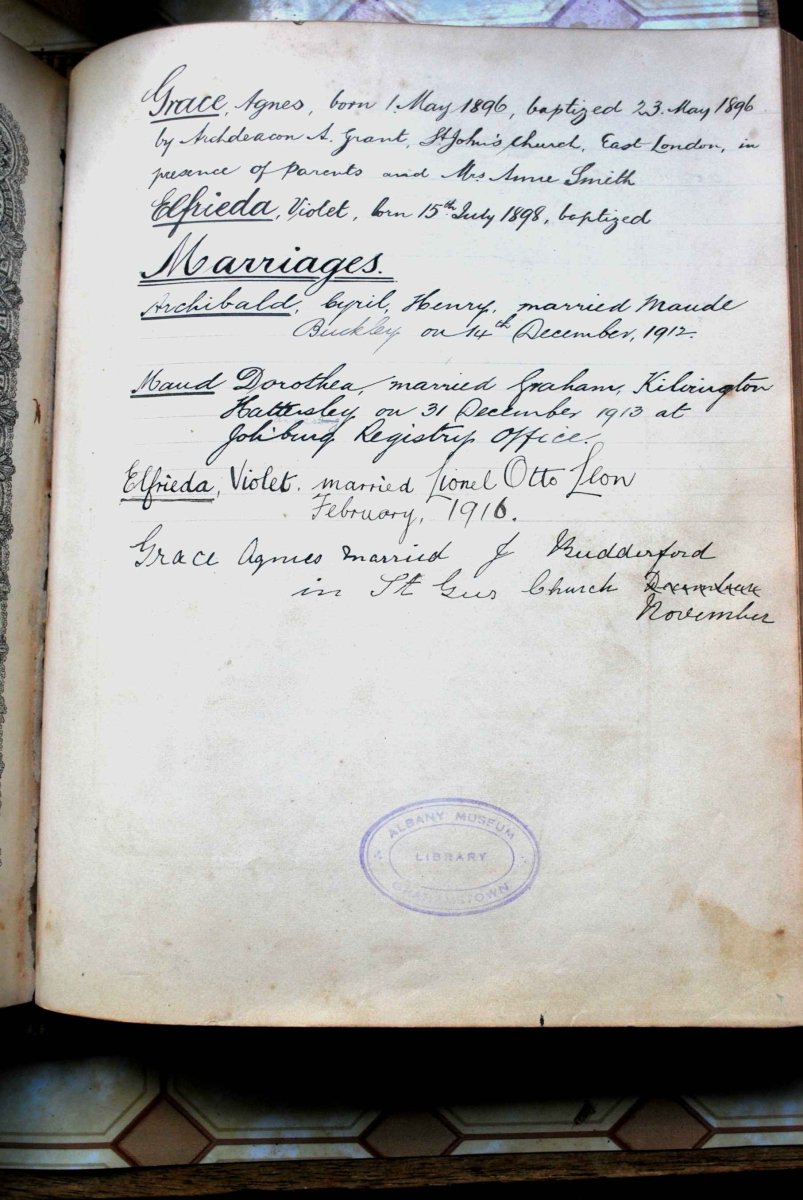 Grace, Agnes, born 1. May 1896, baptized 23. May 1896
by Archdeacon A. Grant, St John's Church, East London, in
presence of Parents and Mrs Annie Smith
Elfrieda, Violet, born 15th July 1898, baptized
Marriages.
Archibald, Cyril, Henry, married Maude
Buckley on 14th December, 1912.
Maud Dorothea, married Graham, Kilvington
Hattersley on 31 December 1913 at
Joh'burg Registry Office.
Elfrieda, Violet. married Lionel Otto Leon
February, 1916.
Grace Agnes married J Rudderford
in St Gus Church December
November
ALBANY MUSEUM
LIBRARY
GRAHAMSTOWN